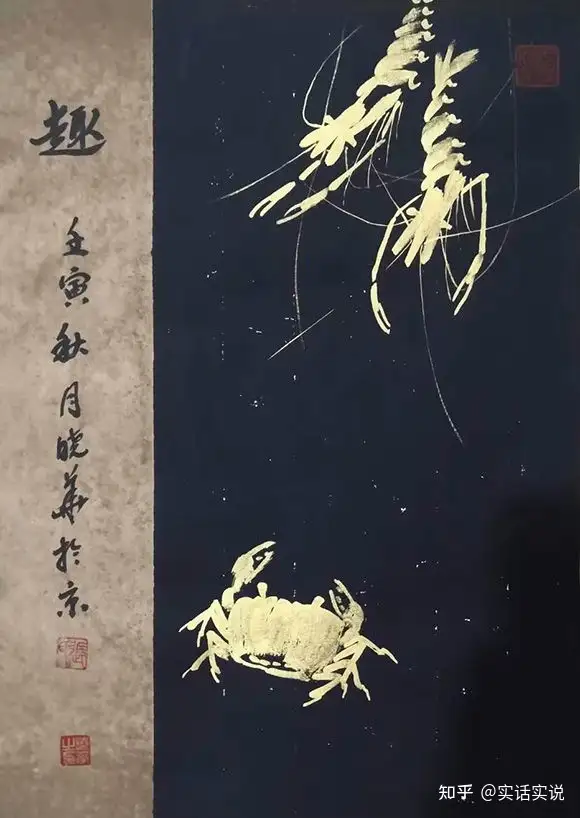 趣
壬寅秋月晓華於京
知乎 @实话实说